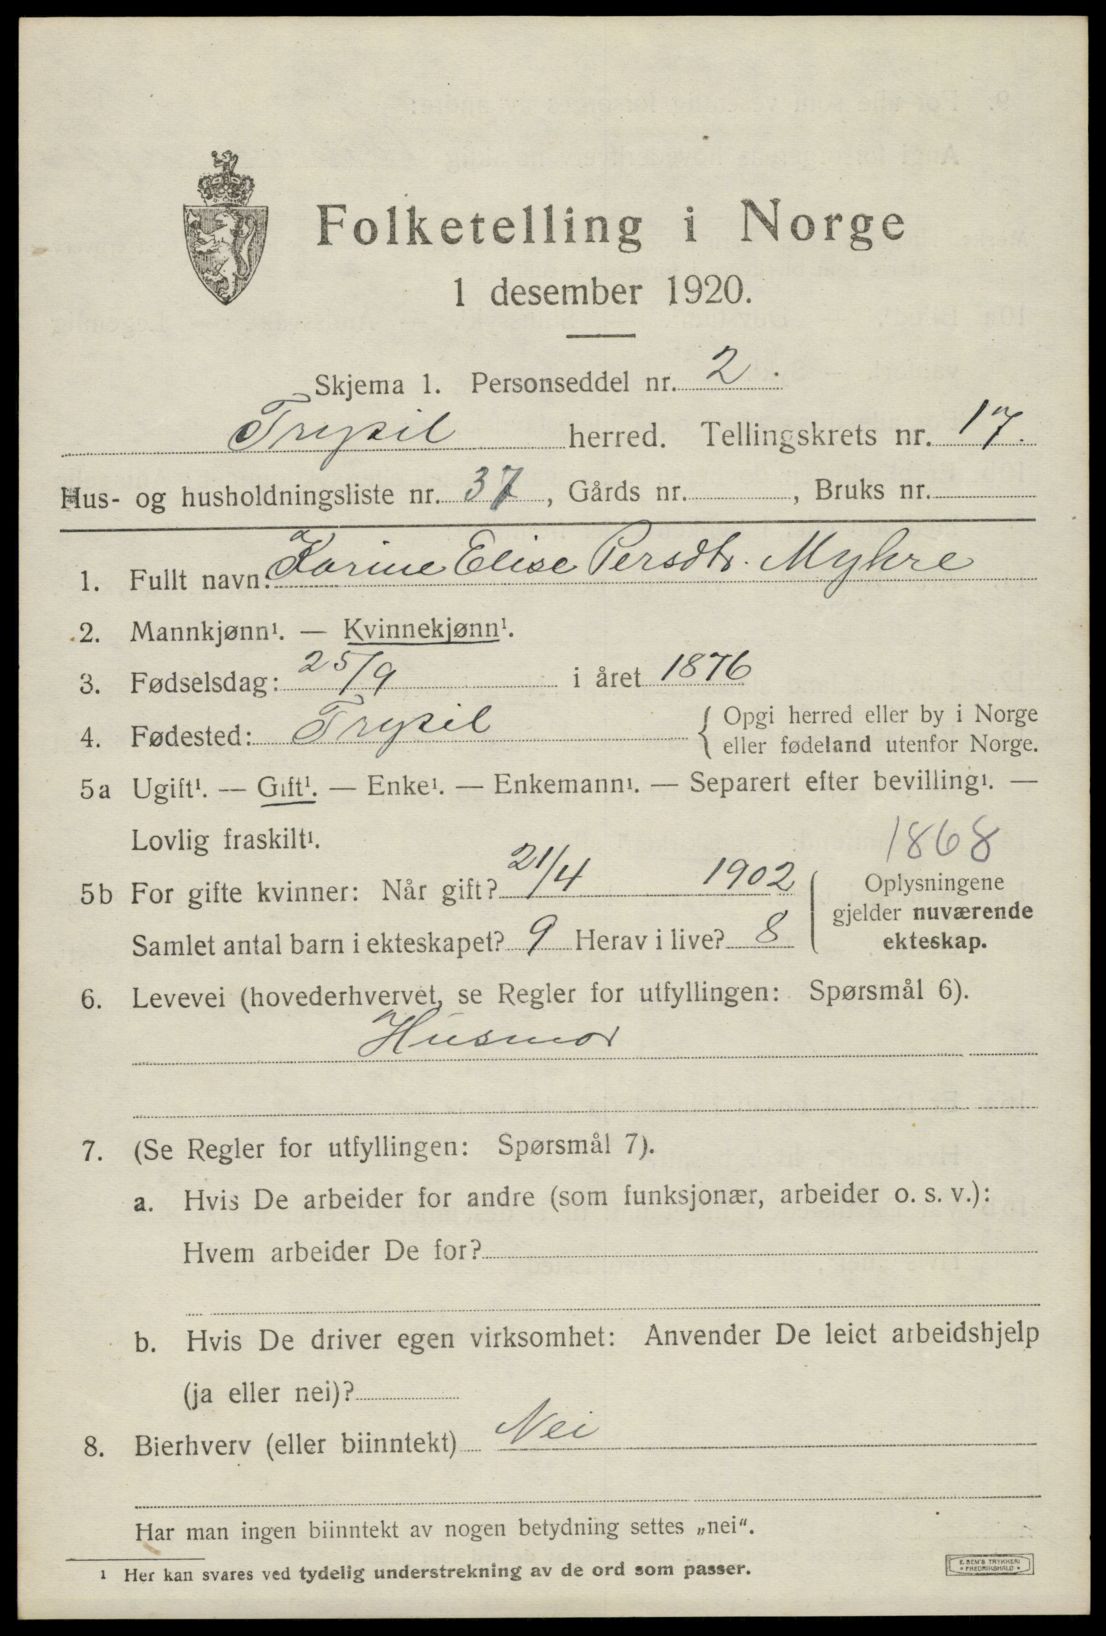 Folketelling i Norge
1 desember 1920.
Skjema 1. Personseddel nr. 2.
Trysil herred. Tellingskrets nr. 17.
Hus- og husholdningsliste nr. 37, Gårds nr. , Bruks nr.
1. Fullt navn: Karine Elise Persdtr. Myhre
2. Mannkjønn¹. — Kvinnekjønn¹.
3. Fødselsdag: 25/9 i året 1876
4. Fødested: Trysil { Opgi herred eller by i Norge
eller fødeland utenfor Norge.
5a Ugift¹. — Gift¹. — Enke¹. — Enkemann¹. — Separert efter bevilling¹. —
Lovlig fraskilt¹.
1868
5b For gifte kvinner: Når gift? 21/4 1902
Samlet antal barn i ekteskapet? 9 Herav i live? 8
{ Oplysningene
gjelder nuværende
ekteskap.
6. Levevei (hovederhvervet, se Regler for utfyllingen: Spørsmål 6).
Husmor
7. (Se Regler for utfyllingen: Spørsmål 7).
a. Hvis De arbeider for andre (som funksjonær, arbeider o. s. v.):
Hvem arbeider De for?
b. Hvis De driver egen virksomhet: Anvender De leiet arbeidshjelp
(ja eller nei)?
8. Bierhverv (eller biinntekt) Nei
Har man ingen biinntekt av nogen betydning settes „nei“.
¹ Her kan svares ved tydelig understrekning av de ord som passer.
E. SEM'S TRYKKERI
FREDRIKSHALD